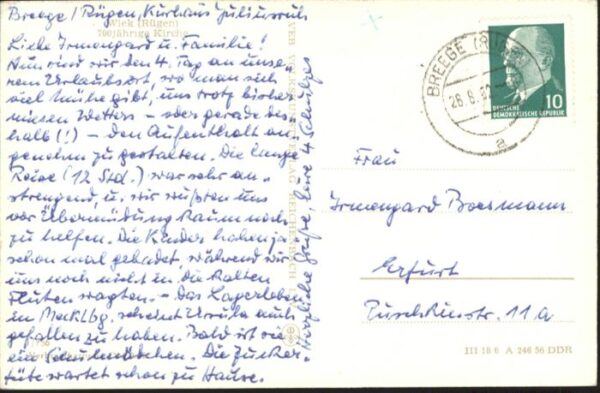 Breege / Rügen, Kurhaus Juliusruh
Wiek (Rügen)
700jährige Kirche
Liebe Irmengard u. Familie!
Nun sind wir den 4. Tag an unse-
rem Urlaubsort, wo man sich
viel Mühe gibt, uns trotz bisher
miesen Wetters – oder gerade des-
halb (!) – den Aufenthalt an-
genehm zu gestalten. Die lange
Reise (12 Std.) war sehr an-
strengend, u. wir wußten uns
vor Übermüdung kaum noch
zu helfen. Die Kinder haben ja
schon mal gebadet, während wir
uns noch nicht in die kalten
Fluten wagten. – Das Lagerleben
in Mecklbg. scheint Ursula auch
gefallen zu haben. Bald ist sie
ein Schulmädchen. Die Zucker-
tüte wartet schon zu Hause.
Herzliche Grüße, Eure 4 Schulzes
REICHENBACH
BREEGE (RÜGEN)
26.6.
a
10
DEUTSCHE
DEMOKRATISCHE REPUBLIK
Frau
Irmengard Boesmann
Erfurt
Puschkinstr. 11a
III 18 6 A 246 56 DDR